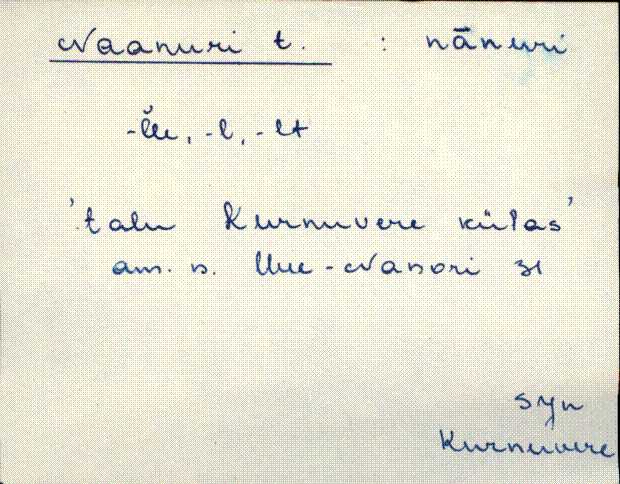 Naanuri t. : nānuri
-l̆le, -l, -lt
'talu Kurnuvere külas'
am. n. Uue-Nanori 31
SJn
Kurnuvere